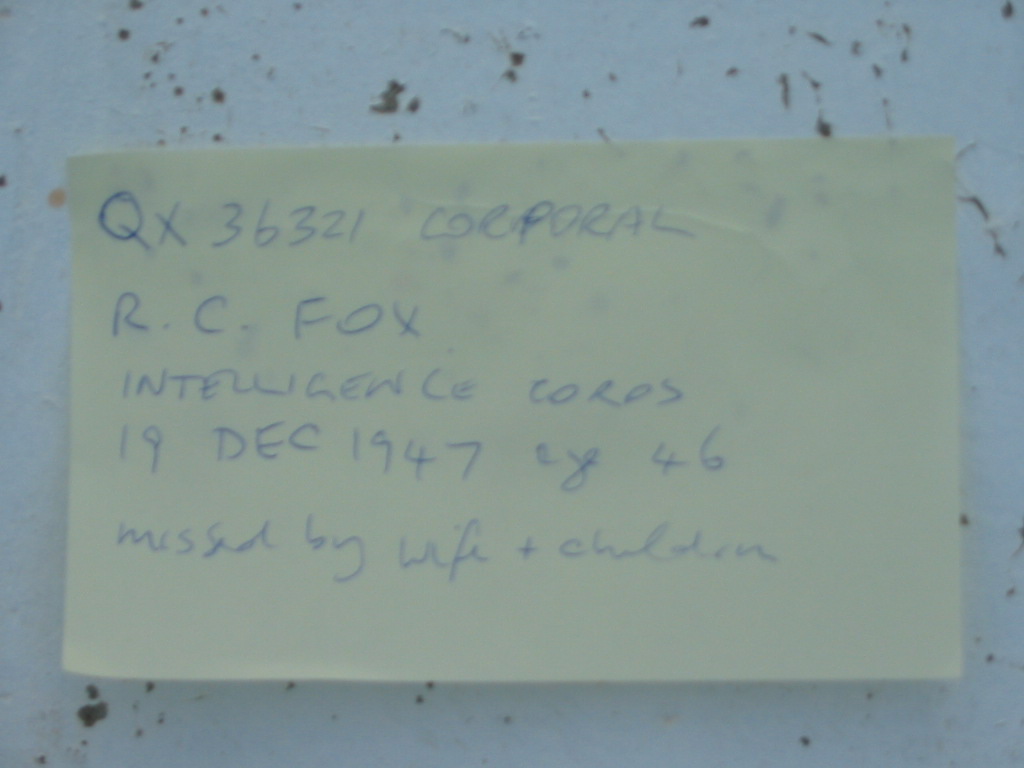 QX 36321 CORPORAL
R. C. FOX
INTELLIGENCE CORPS
19 DEC 1947 age 46
missed by wife + children